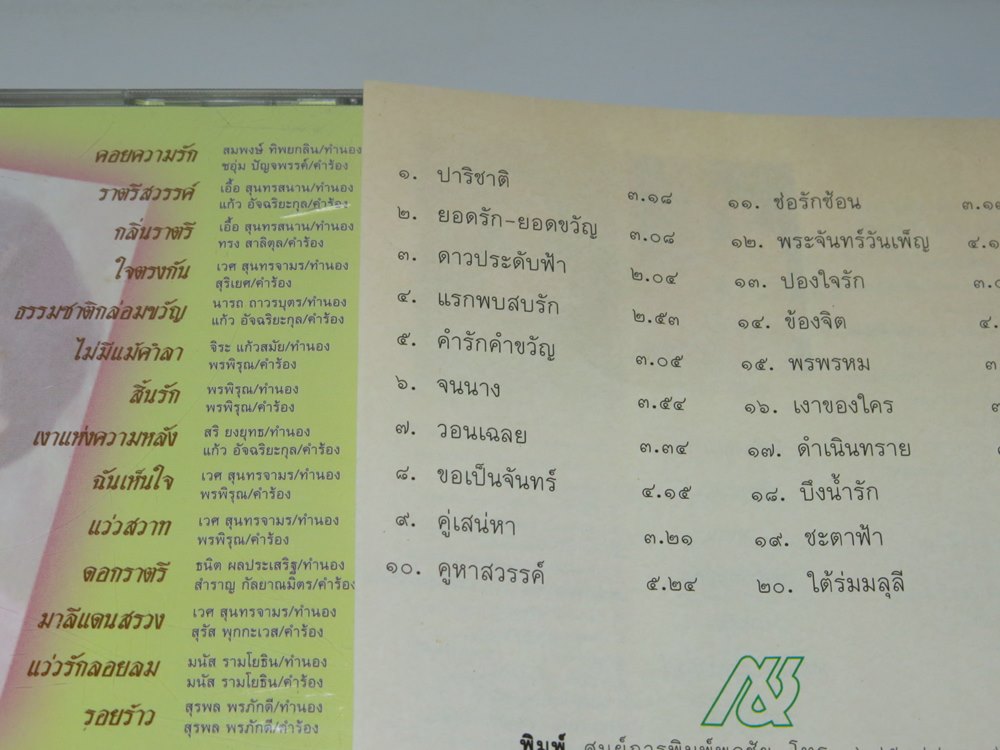 คอยความรัก สมพงษ์ ทิพยกลิน/ทำนอง
ชอุ่ม ปัญจพรรค์/คำร้อง
ราตรีสวรรค์ เอื้อ สุนทรสนาน/ทำนอง
แก้ว อัจฉริยะกุล/คำร้อง
กลิ่นราตรี เอื้อ สุนทรสนาน/ทำนอง
ทรง สาลิตุล/คำร้อง
ใจตรงกัน เวศ สุนทรจามร/ทำนอง
สุริเยศ/คำร้อง
ธรรมชาติกล่อมขวัญ นารถ ถาวรบุตร/ทำนอง
แก้ว อัจฉริยะกุล/คำร้อง
ไม่มีแม้คำลา จิระ แก้วสมัย/ทำนอง
พรพิรุณ/คำร้อง
สิ้นรัก พรพิรุณ/ทำนอง
พรพิรุณ/คำร้อง
เงาแห่งความหลัง สริ ยงยุทธ/ทำนอง
แก้ว อัจฉริยะกุล/คำร้อง
ฉันเห็นใจ เวศ สุนทรจามร/ทำนอง
พรพิรุณ/คำร้อง
แว่วสวาท เวศ สุนทรจามร/ทำนอง
พรพิรุณ/คำร้อง
ดอกราตรี ธนิต ผลประเสริฐ/ทำนอง
สำราญ กัลยาณมิตร/คำร้อง
มาลีแดนสรวง เวศ สุนทรจามร/ทำนอง
สุรัส พุกกะเวส/คำร้อง
แว่วรักลอยลม มนัส รามโยธิน/ทำนอง
มนัส รามโยธิน/คำร้อง
รอยร้าว สุรพล พรภักดี/ทำนอง
สุรพล พรภักดี/คำร้อง
๑. ปาริชาติ ๓.๑๘
๒. ยอดรัก-ยอดขวัญ ๓.๐๘
๓. ดาวประดับฟ้า ๒.๐๔
๔. แรกพบสบรัก ๒.๕๓
๕. คำรักคำขวัญ ๓.๐๕
๖. จนนาง ๓.๕๔
๗. วอนเฉลย ๓.๓๔
๘. ขอเป็นจันทร์ ๔.๑๕
๙. คู่เสน่หา ๓.๒๑
๑๐. คูหาสวรรค์ ๕.๒๔
๑๑. ช่อรักซ้อน
๑๒. พระจันทร์วันเพ็ญ
๑๓. ปองใจรัก
๑๔. ข้องจิต
๑๕. พรพรหม
๑๖. เงาของใคร
๑๗. ดำเนินทราย
๑๘. บึงน้ำรัก
๑๙. ชะตาฟ้า
๒๐. ใต้ร่มมลุลี
พิมพ์